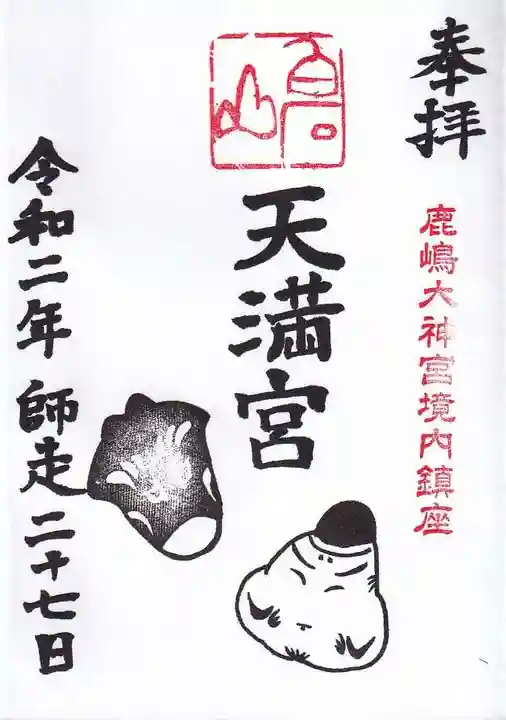 奉拝
鹿嶋大神宮境内鎮座
高山
天満宮
令和二年 師走 二十七日